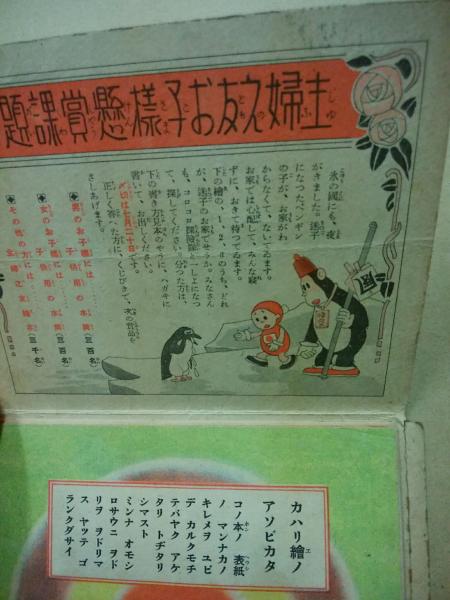 主婦之友お子樣懸賞課題
氷の國にも、夜
がきました。迷子
になつたペンギン
の子が、お家がわ
からなくて、ないてゐます。
お家では心配して、みんな寢
ずに、おきて待つてゐます。
下の繪の、1、2、3のうち、どれ
が、迷子のお家でせうか。みなさん
も、コロコロ探險隊と一しよになつ
て、探してください。分つた方は、
下の書き方見本のやうに、ハガキに
書いて、お出しください。
〆切は七月二十日です。
正しく答へた方に、くじびきで、次の賞品を
さしあげます。
◆男のお子樣には……
男子供用の水筒(三百名)
◆女のお子樣には……
◆その他の方には
(三千名)
カハリ繪ノ
アソビカタ
コノ本ノ表紙
ノマンナカノ
キレメヲユビ
デカルクモチ
テバヤクアケ
タリトヂタリ
シマスト
ミンナオモシ
ロサウニヲド
リヲヲドリマ
スヤツテゴ
ランクダサイ